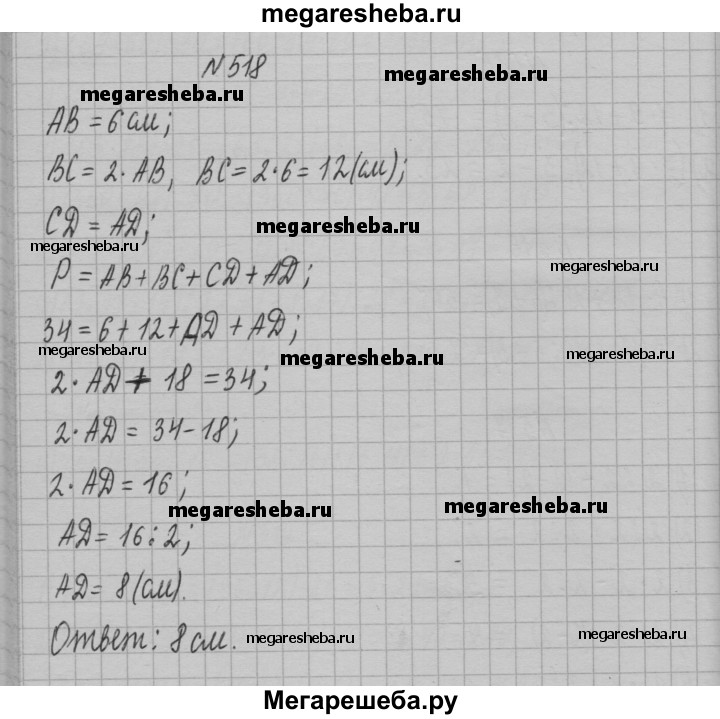 megaresheba.ru
№518
megaresheba.ru
megaresheba.ru
AB = 6 см;
BC = 2 · AB, BC = 2 · 6 = 12 (см);
CD = AD;
megaresheba.ru
megaresheba.ru
P = AB + BC + CD + AD;
megaresheba.ru
34 = 6 + 12 + AD + AD;
megaresheba.ru
megaresheba.ru
megaresheba.ru
2 · AD + 18 = 34;
2 · AD = 34 - 18;
2 · AD = 16;
megaresheba.ru
megaresheba.ru
AD = 16 : 2;
AD = 8 (см).
Ответ: 8 см.
megaresheba.ru
megaresheba.ru
Мегарешеба.ру